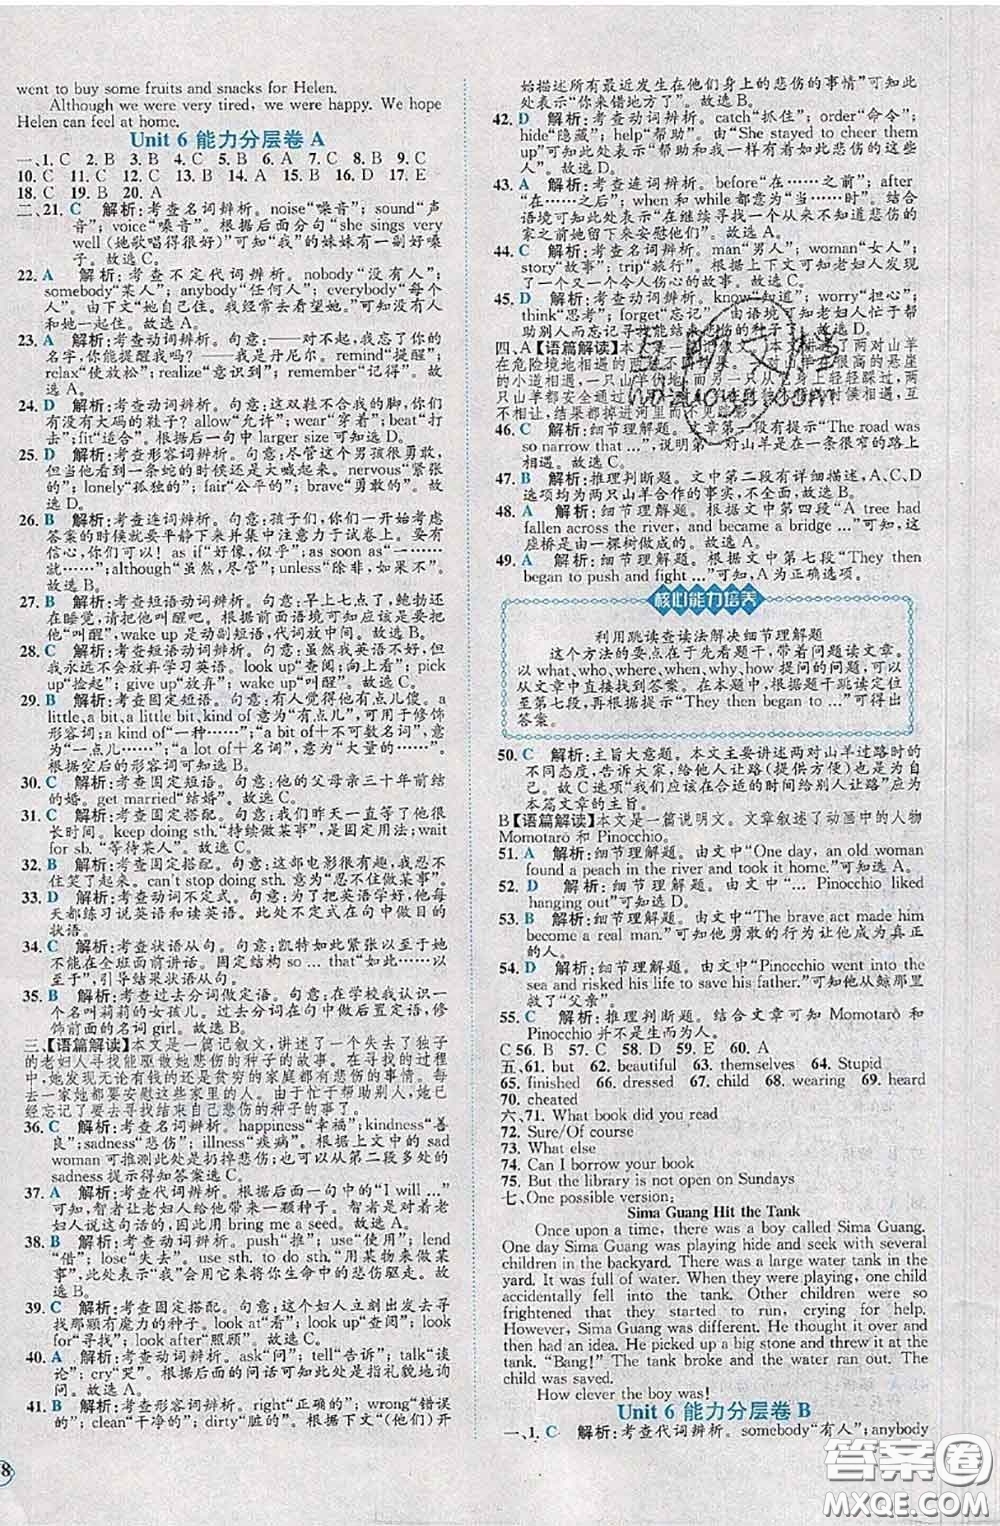 went to buy some fruits and snacks for Helen.
Although we were very tired, we were happy. We hope
Helen can feel at home.
Unit 6 能力分层卷 A
一、1. C 2. B 3. B 4. C 5. C 6. A 7. C 8. B 9. C
10. C 11. C 12. C 13. C 14. A 15. B 16. C 17. E
18. C 19. B 20. A
二、21. C 解析:考查名词辨析。noise“噪音”; sound“声
音”; voice“嗓音”。根据后面分句“she sings very
well (她歌唱得很好)”可知“我”的妹妹有一副好嗓
子。故选 C。
22. A 解析:考查不定代词辨析。nobody“没有人”;
somebody“某人”; anybody“任何人”; everybody“每个
人”。由下文“她自己住。我常去看望她。”可知没有人
和她一起住。故选 A。
23. A 解析:考查动词辨析。句意:——对不起,我忘了你的
名字,你能提醒我吗? ——我是丹尼尔。remind“提醒”;
relax“使放松”; realize“意识到”; remember“记得”。故
选 A。
24. D 解析:考查动词辨析。句意:这双鞋不合我的脚,你
们有没有大码的鞋子? allow“允许”; wear“穿着”; beat“打
败”; fit“适合”。根据后一句中 larger size 可知选 D。
25. D 解析:考查形容词辨析。句意:尽管这个男孩很勇敢,
但当他看到一条蛇的时候还是大喊起来。nervous“紧张
的”; lonely“孤独的”; fair“公平的”; brave“勇敢的”。故
选 D。
26. B 解析:考查连词辨析。句意:孩子们,你们一开始考虑
答案的时候就要平静下来并集中注意力于试卷上。要有
信心,你们可以! as if“好像,似乎”; as soon as“一……
就……”; although“虽然,尽管”; unless“除非,如果不”。
故选 B。
27. B 解析:考查短语动词辨析。句意:早上七点了,鲍勃还
在睡觉,请把他叫醒。根据前面语境可知应该是要把
他“叫醒”,wake up 是动副短语,代词放中间。故选 B。
28. C 解析:考查短语动词辨析。句意:虽然我英语不好,但
是我永远不会放弃学习英语。look up“查阅;向上看”; pick
up“捡起”; give up“放弃”; dress up“装扮”。故选 C。
29. B 解析:考查固定短语。句意:有人觉得他有点儿傻。a
little,a bit,a little bit,kind of 意为“有点儿”,可用于修饰
形容词;a kind of意为“一种”;“a bit of+不可数名词”意为
“一点儿”;“a lot of+名词”,意为“大量的……”。
根据空后的形容词可知选 B。
30. C 解析:考查固定短语。句意:他的父母亲三十年前结
的婚。get married“结婚”。故选 C。
31. C 解析:考查固定搭配。句意:我们昨天在学校门口等他
很长时间。keep doing sth.“持续做某事”,是固定用法;wait
for sb.“等待某人”。故选 C。
32. B 解析:考查固定搭配。句意:这部电影很有趣,我忍不
住笑了起来。can't stop doing sth.意为“忍不住做某事”。
33. D 解析:考查动词不定式。句意:为了把英语学好,他每
天都练习说英语和读英语。此处不定式在句中做目的
状语。
34. C 解析:考查状语从句。句意:凯特如此紧张以至于她
不能在全班面前讲话。固定结构 so ... that“如此……以
至于”,引导结果状语从句。
35. B 解析:考查过去分词做定语。句意:在学校我认识一
个名叫莉莉的女孩儿。过去分词短语做后置定语,
修饰前面的名词 girl。故选 B。
三、【语篇解读】本文是一篇记叙文,讲述了一个失去了独子
的老妇人寻找能驱散她悲伤的种子的故事。在寻找的过程
中,她发现无论有钱的还是贫穷的家庭都有悲伤的事情。每到
一家她都要安慰这些家里的人。由于忙于帮助别人,她已
经忘记了要去寻找结束自己悲伤的种子的事了。
36. C 解析:考查名词辨析。happiness“幸福”;kindness“善
良”;sadness“悲伤”; illness“疾病”。根据上文中的 sad
woman 可推测此处是扔掉悲伤;也可以从第二段多处的
sadness 提示得知答案选 C。
37. A 解析:考查代词辨析。根据前面一句中的“I will ...”
可知,智者让老妇人去给他带来一颗种子。智者是对着
老妇人说这句话的,故应用 bring me a seed。故选 A。
38. B 解析:考查动词辨析。push“推”; use“使用”; lend
“借”; lose“失去”。use sth. to do sth.“用某物来做某
事”,此处表示“我”会用它来将你生命中的悲伤驱走。故
选 B。
39. C 解析:考查固定搭配。句意:老妇人立刻出发去寻
找那颗有魔力的种子。look at“看”;look up“查阅”;look
for“寻找”;look after“照顾”。故选 C。
40. A 解析:考查动词辨析。ask“问”; tell“告诉”; talk“谈
论”; cry“哭”。根据后面的问话可知此处指礼貌地询
问。故选 A。
41. B 解析:考查形容词辨析。right“正确的”; wrong“错误
的”; clean“干净的”; dirty“脏的”。根据下文“(他们)开
始描述所有最近发生在他们身上的悲伤的事情”可知此
处表示“你来错地方了”。故选 B。
42. D 解析:考查动词辨析。catch“抓住”; order“命令”;
hide“隐藏”; help“帮助”。由“She stayed to cheer them
up”可知此处表示“帮助和我一样有此悲伤的这些
人”。故选 D。
43. A 解析:考查连词辨析。before“在……之前”; after
“在……之后”; when 和 while 都意为“当……时”。结合
语境可知此处表示“在继续寻找一个从不知悲伤的
家之前她留下来安慰他们”。故选 A。
44. C 解析:考查名词辨析。man“男人”; woman“女人”;
story“故事”; trip“旅行”。根据上下文可知老妇人发现
了一个又一个令人伤心的故事。故选 C。
45. D 解析:考查动词辨析。know“知道”; worry“担心”;
think“思考”; forget“忘记”。由语境可知老妇人忙于帮
助别人而忘记寻找能结束悲伤的种子。故选 D。
四、A【语篇解读】本文是一篇记叙文。文章讲述了两对山羊
在危险境地相遇的不同做法。
46. C 解析:细节理解题。文章第一段有提示“The road was
so narrow that ...”,说明第一对山羊是在一条很窄的路上
相遇。故选 C。
47. B 解析:推理判断题。文中第二段有详细描述,A、C、D
选项均为两只山羊合作的事实,不全面。故选 B。
48. A 解析:细节理解题。根据文中第四段“A tree had
fallen across the river, and became a bridge ...”可知,这
座桥是由一棵树做成的。故选 A。
49. A 解析:细节理解题。根据文中第七段“They then
began to push and fight ...”可知,A为正确选项。
核心能力培养
利用跳读查读法解决细节理解题
这个方法的要点在于先看题干,带着问题读文章。
以 what,who,where,when,why,how 提问的问题,可以
从文章中直接找到答案。在本题中,根据题干跳读定位
至第七段,再根据提示“They then began to ...”可得出
答案。
50. C 解析:主旨大意题。本文主要讲述两对山羊过路时的
不同态度,告诉大家,给他人让路(提供方便)也是给自己
让路。故 C 选项“我们应该在合适的时间给别人让路”应为
本篇文章的主旨。
B【语篇解读】本文是一篇说明文。文章叙述了动画中的人物
Momotarō 和 Pinocchio。
51. A 解析:细节理解题。由文中“One day, an old woman
found a peach in the river and took it home.”可知选 A。
52. D 解析:细节理解题。由文中“... Pinocchio liked
hanging out”可知选 D。
53. B 解析:细节理解题。由文中“The brave act made him
become a real man.”可知他勇敢的行为让他成为真正
的人。
54. D 解析:细节理解题。由文中“Pinocchio went into the
sea and risked his life to save his father.”可知他从鲸那里
救了“父亲”。
55. C 解析:推理判断题。结合文章可知 Momotarō 和
Pinocchio 并不是生而平凡。
C 56. B 57. C 58. D 59. E 60. A
五、61. but 62. beautiful 63. themselves 64. Stupid
65. finished 66. dressed 67. child 68. wearing 69. heard
70. cheated
六、71. What book did you read
72. Sure/Of course
73. What else
74. Can I borrow your book
75. But the library is not open on Sundays
七、One possible version:
Sima Guang Hit the Tank
Once upon a time, there was a boy called Sima Guang.
One day Sima Guang was playing hide and seek with several
children in the backyard. There was a large water tank in the
yard. It was full of water. When they were playing, one child
accidentally fell into the tank. Other children were so
frightened that they started to run, crying for help.
However, Sima Guang was different. He thought for a few
seconds. Suddenly, he picked up a big rock and hit the
tank. “Bang!” The tank broke and the water ran out. The
child was saved.
How clever the boy was!
Unit 6 能力分层卷 B
一、1. C 解析:考查代词辨析。somebody“有人”; anybody
8
答案圈
MXQE.COM